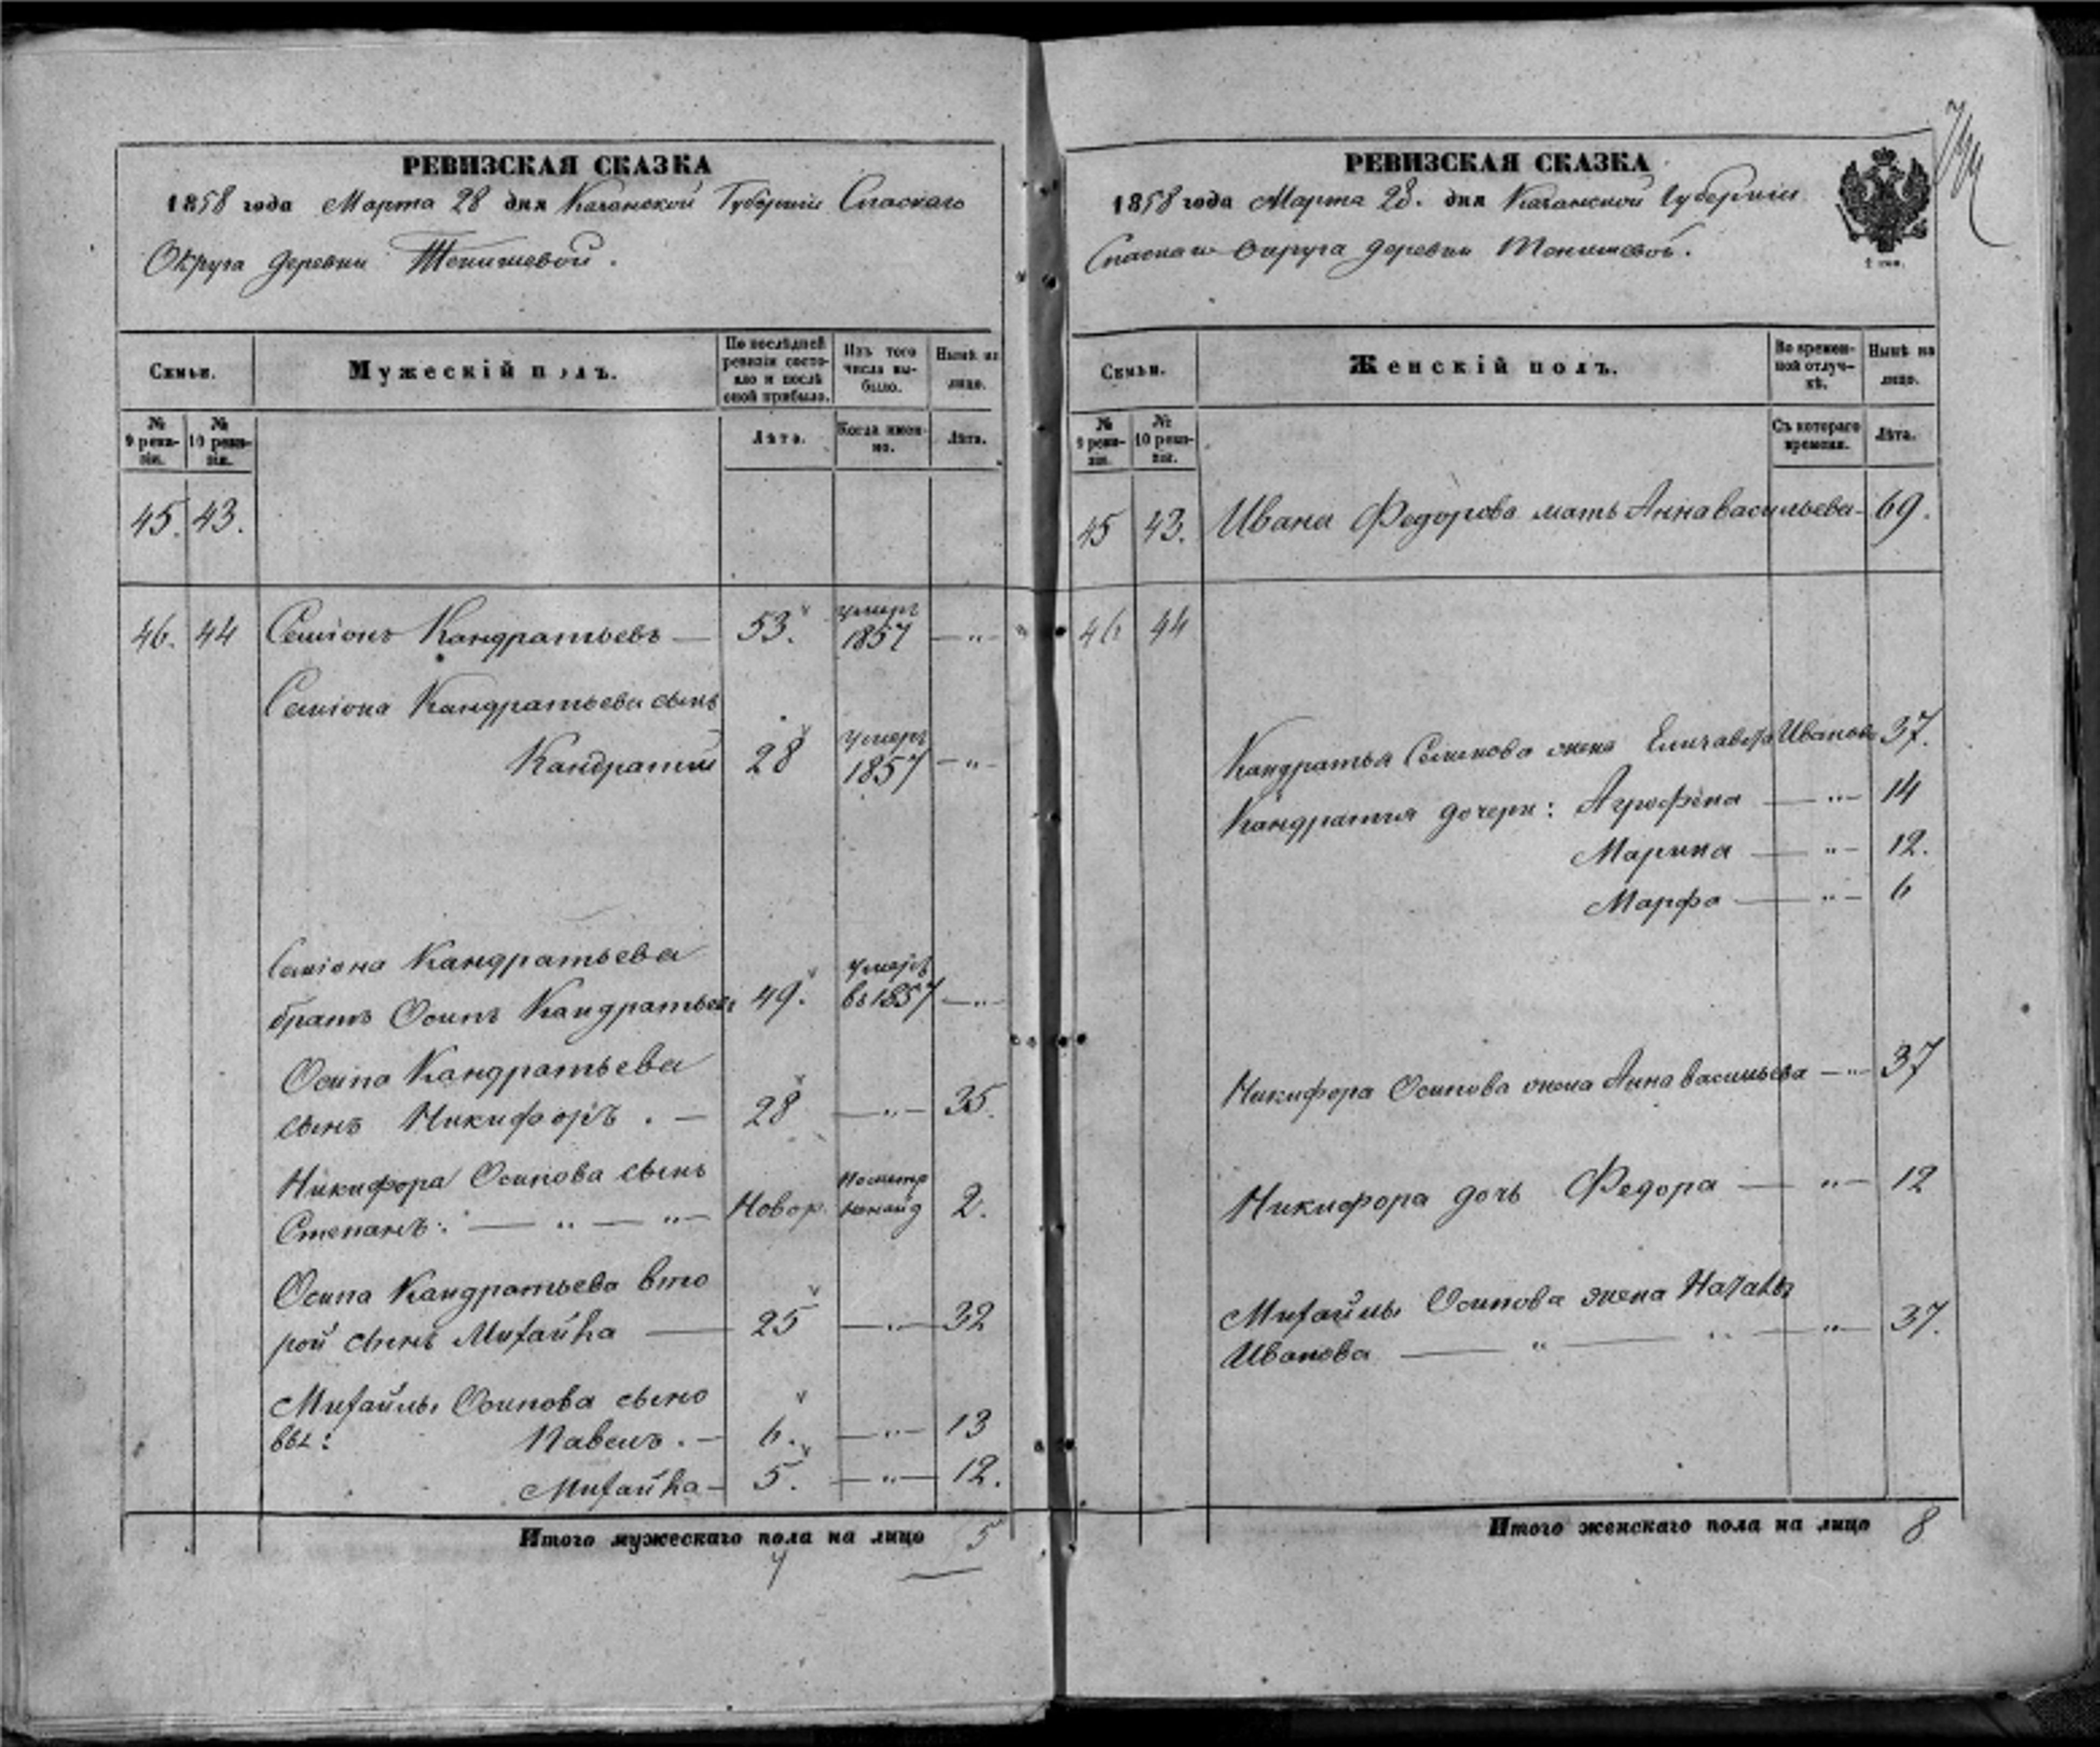 РЕВИЗСКАЯ СКАЗКА
1858 года Марта 28 дня Казанской Губернiи Спаскаго
Округа деревни Тенишевой.
Семьи.
Мужескiй полъ.
По послѣдней ревизiи состояло и послѣ оной прибыло.
Изъ того числа выбыло.
Нынѣ на лицо.
№ 9 ревизiи.
№ 10 ревизiи.
Лѣта.
Когда именно.
Лѣта.
45. 43.
46. 44 Семiонъ Кандратьевъ — 53. умеръ 1857 — " —
Семiона Кандратьева сынъ
Кандратiй 28 умеръ 1857 — " —
Семiона Кандратьева
братъ Осипъ Кандратьевъ 49. умеръ въ 1857 — " —
Осипа Кандратьева
сынъ Никифоръ . — 28 — " — 35.
Никифора Осипова сынъ
Степанъ: — " — " — Новор. 2.
Осипа Кандратьева вто
рой сынъ Михайла — 25 — " — 32
Михайлы Осипова сыно
вья: Павелъ . — 6. — " — 13
Михайла — 5. — " — 12.
Итого мужескаго пола на лицо 5
РЕВИЗСКАЯ СКАЗКА
1858 года Марта 28. дня Казанской Губернiи
Спаскаго Округа деревни Тенишевой.
Семьи.
Женскiй полъ.
Во временной отлучкѣ.
Нынѣ на лицо.
№ 9 ревизiи.
№ 10 ревизiи.
Съ котораго времени.
Лѣта.
45 43. Ивана Федорова мать Анна Васильева — 69.
46 44
Кандратья Семионова жена Елизавета Иванова 37.
Кандратiя дочери: Агрофена — " — 14
Марина — " — 12.
Марфа — " — 6
Никифора Осипова жена Анна Васильева — " — 37
Никифора дочь Федора — " — 12
Михайлы Осипова жена Наталья
Иванова — " — " — " — 37.
Итого женскаго пола на лицо 8